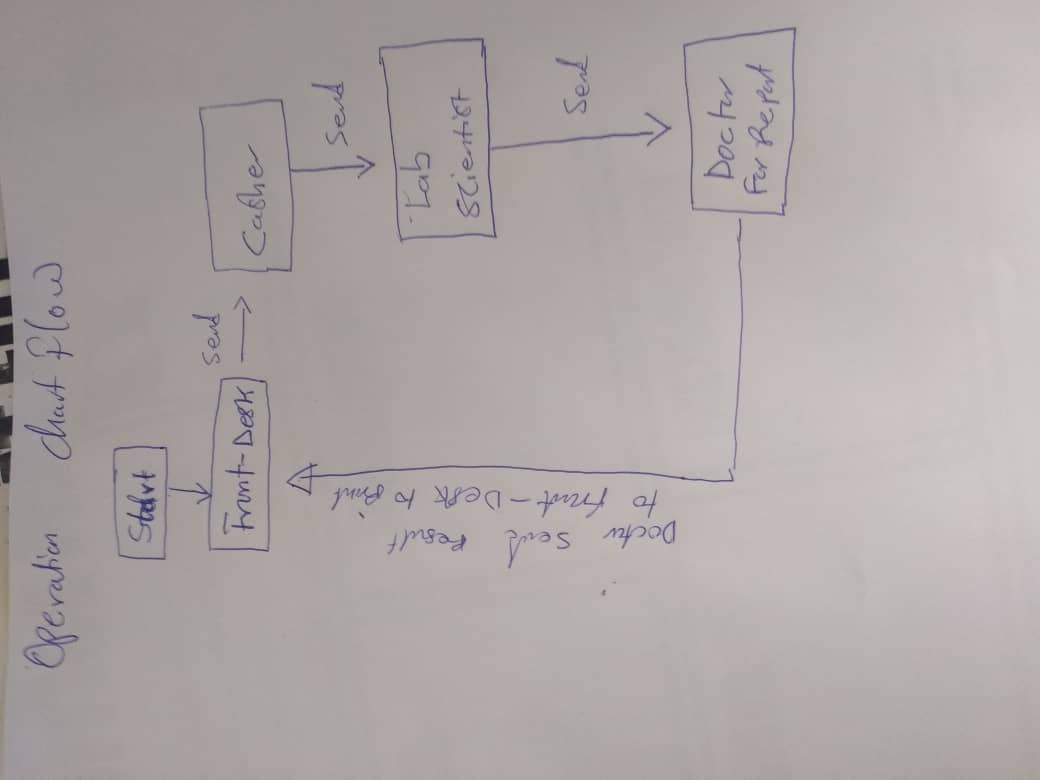 Operation Chart flow
Start
Front-Desk
Send
Casher
Send
Lab
Scientist
Send
Doctor
For Report
Doctor Send Result
to Front-Desk to Print